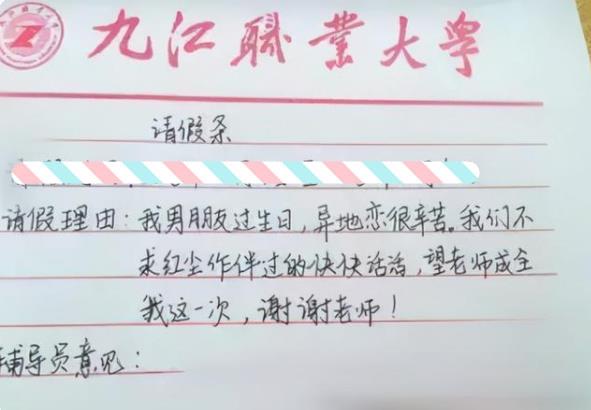 九江職業大学
请假条
请假理由：我男朋友过生日，异地恋很辛苦。我们不
求红尘作伴过的快快活活，望老师成全
我这一次，谢谢老师！
辅导员意见：